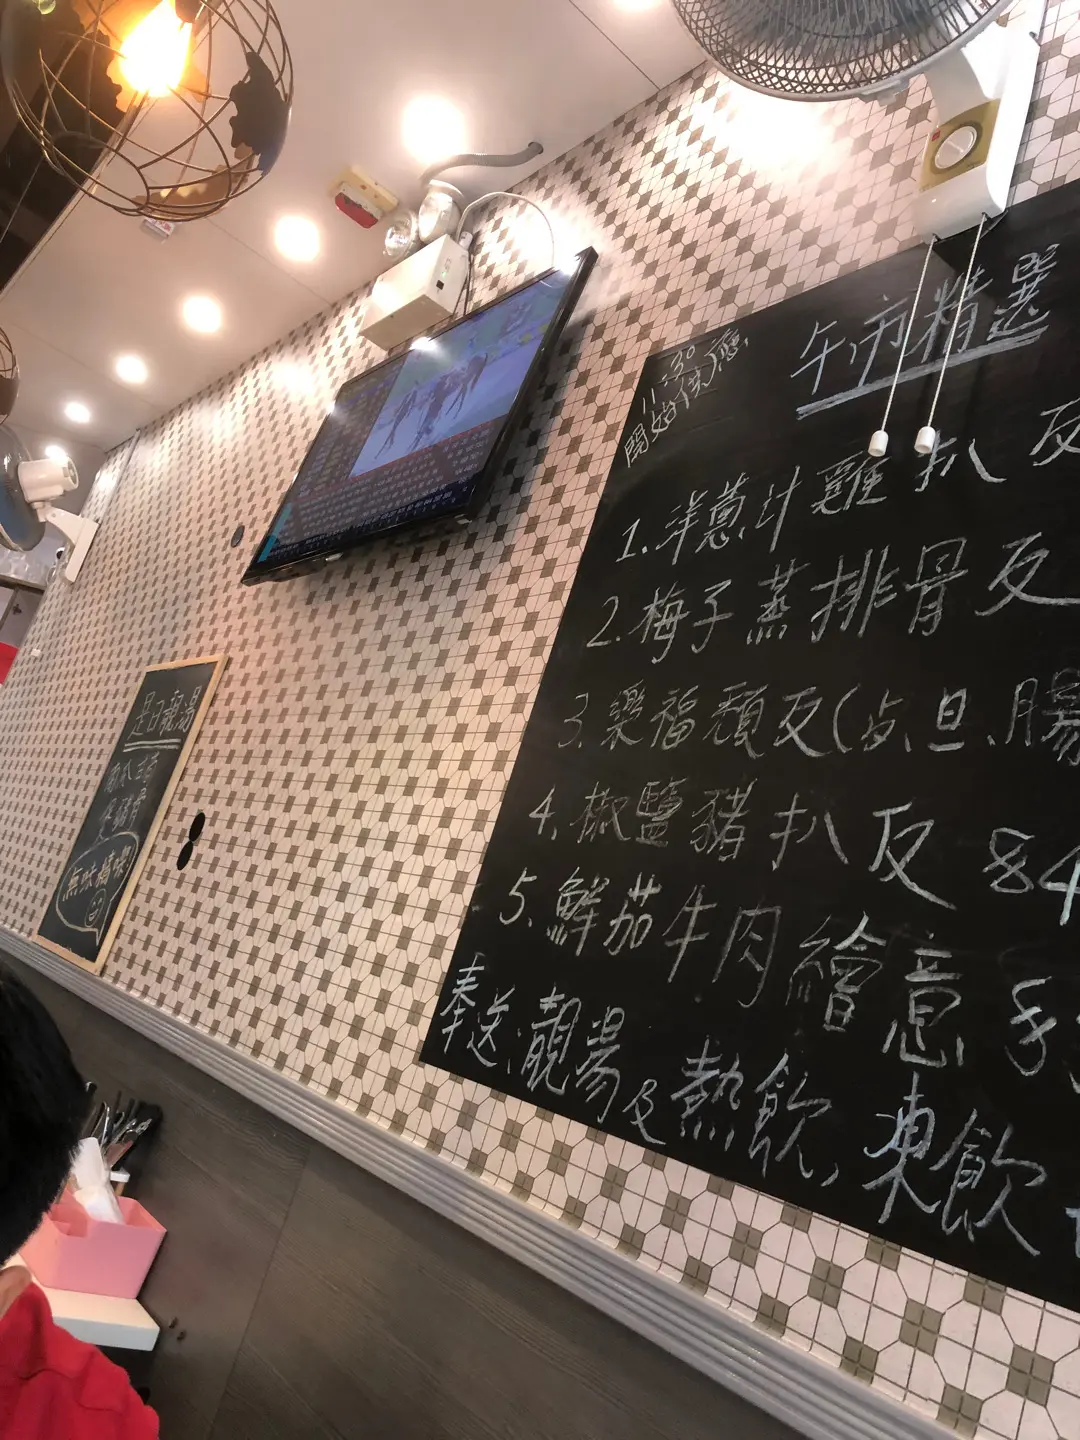 午市精選
11:30
開始供應
1.洋蔥汁雞扒反
2.梅子蒸排骨反
3.樂福頹反(占、旦、腸
4.椒鹽豬扒反 84
5.鮮茄牛肉繪意
奉送:靚湯及熱飲,凍飲
是日靚湯
無味精㗎